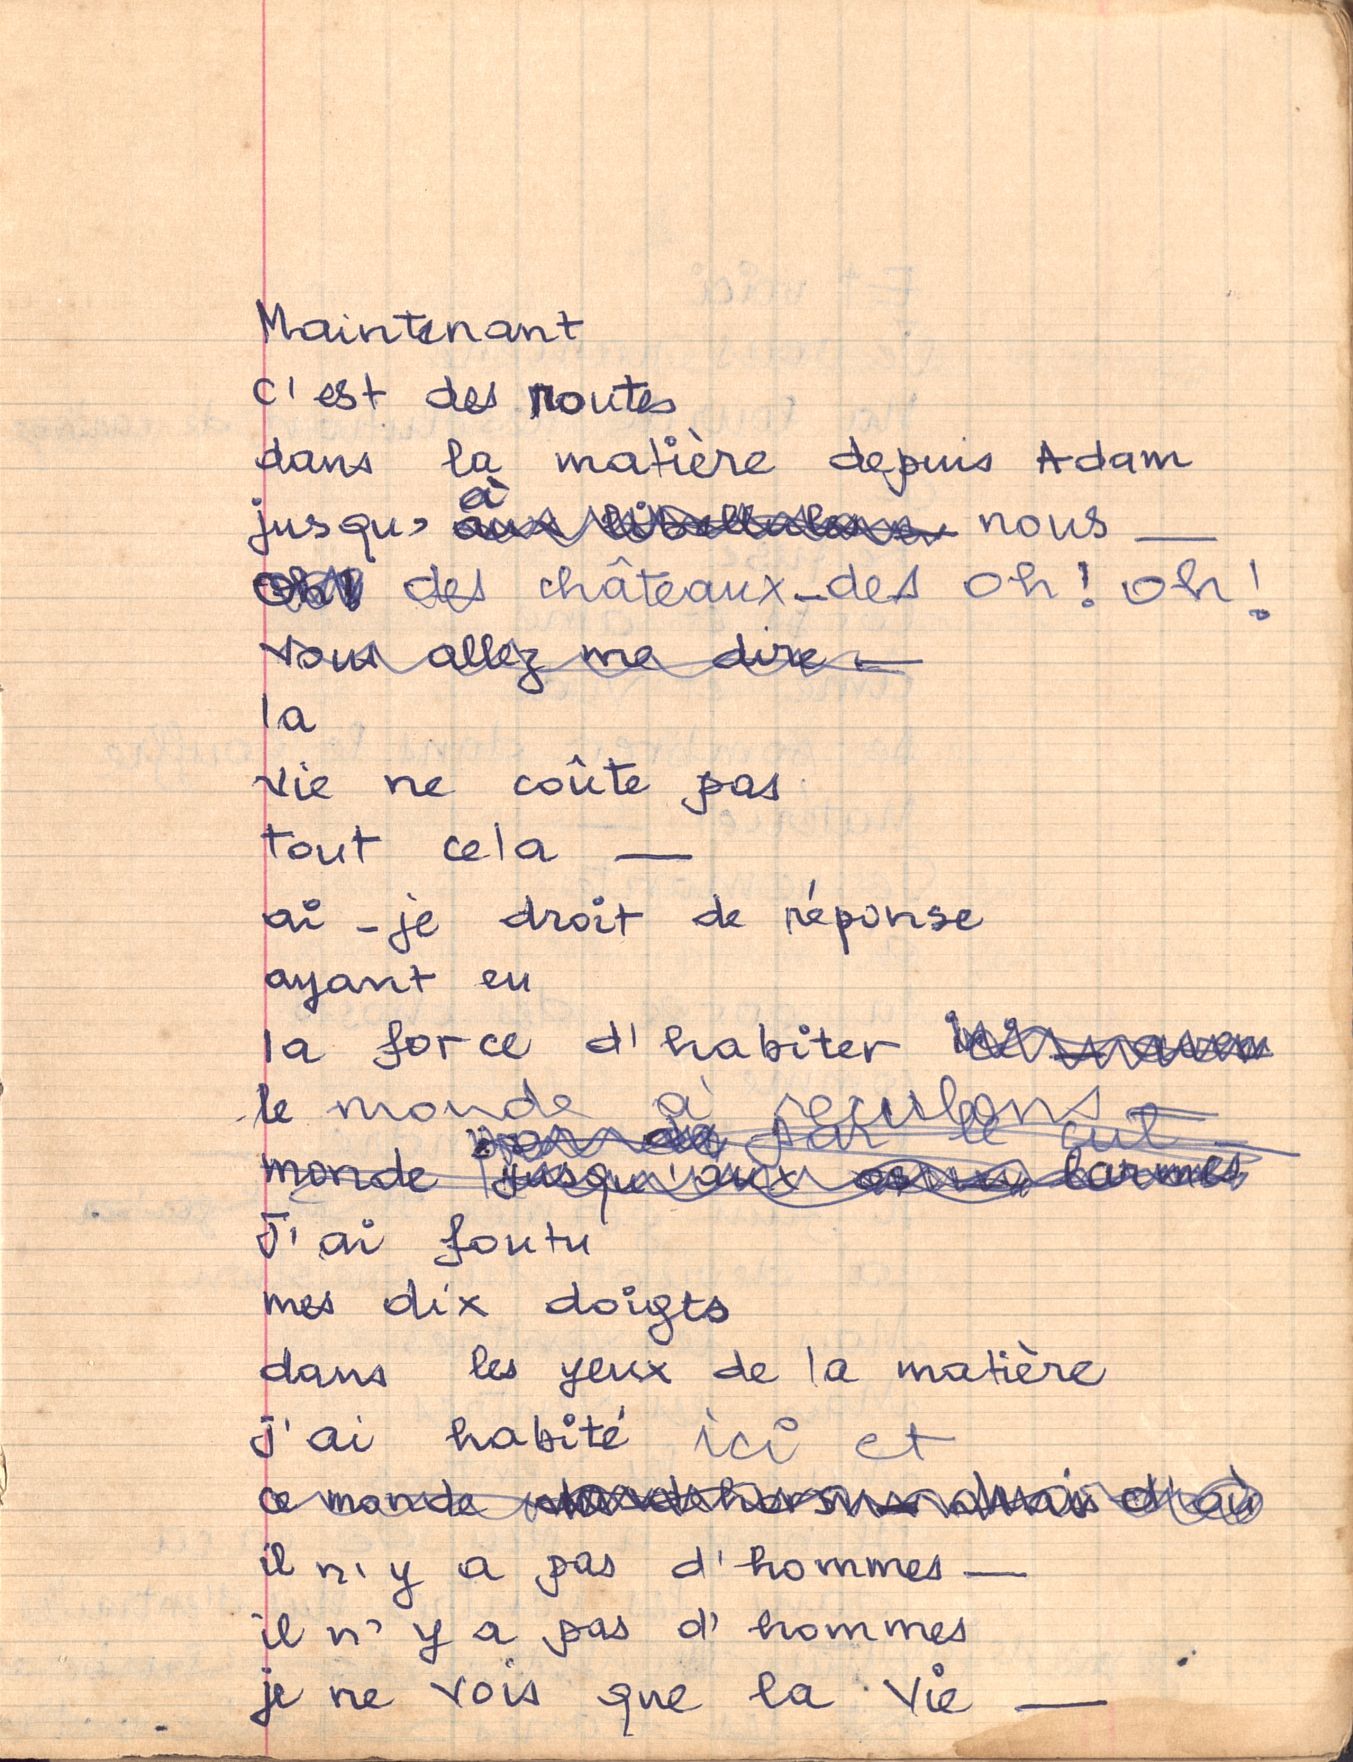 Maintenant
c'est des routes
dans la matière depuis Adam
à
jusqu' aux libellules nous —
Oh! des châteaux - des oh! oh!
vous allez me dire —
la
vie ne coûte pas
tout cela —
ai-je droit de réponse
ayant eu
la force d'habiter
le monde à reculons —
par le cul —
monde jusqu'aux larmes
J'ai foutu
mes dix doigts
dans les yeux de la matière
J'ai habité ici et
ce monde d'où
il n'y a pas d'hommes —
il n'y a pas d'hommes
je ne vois que la vie —